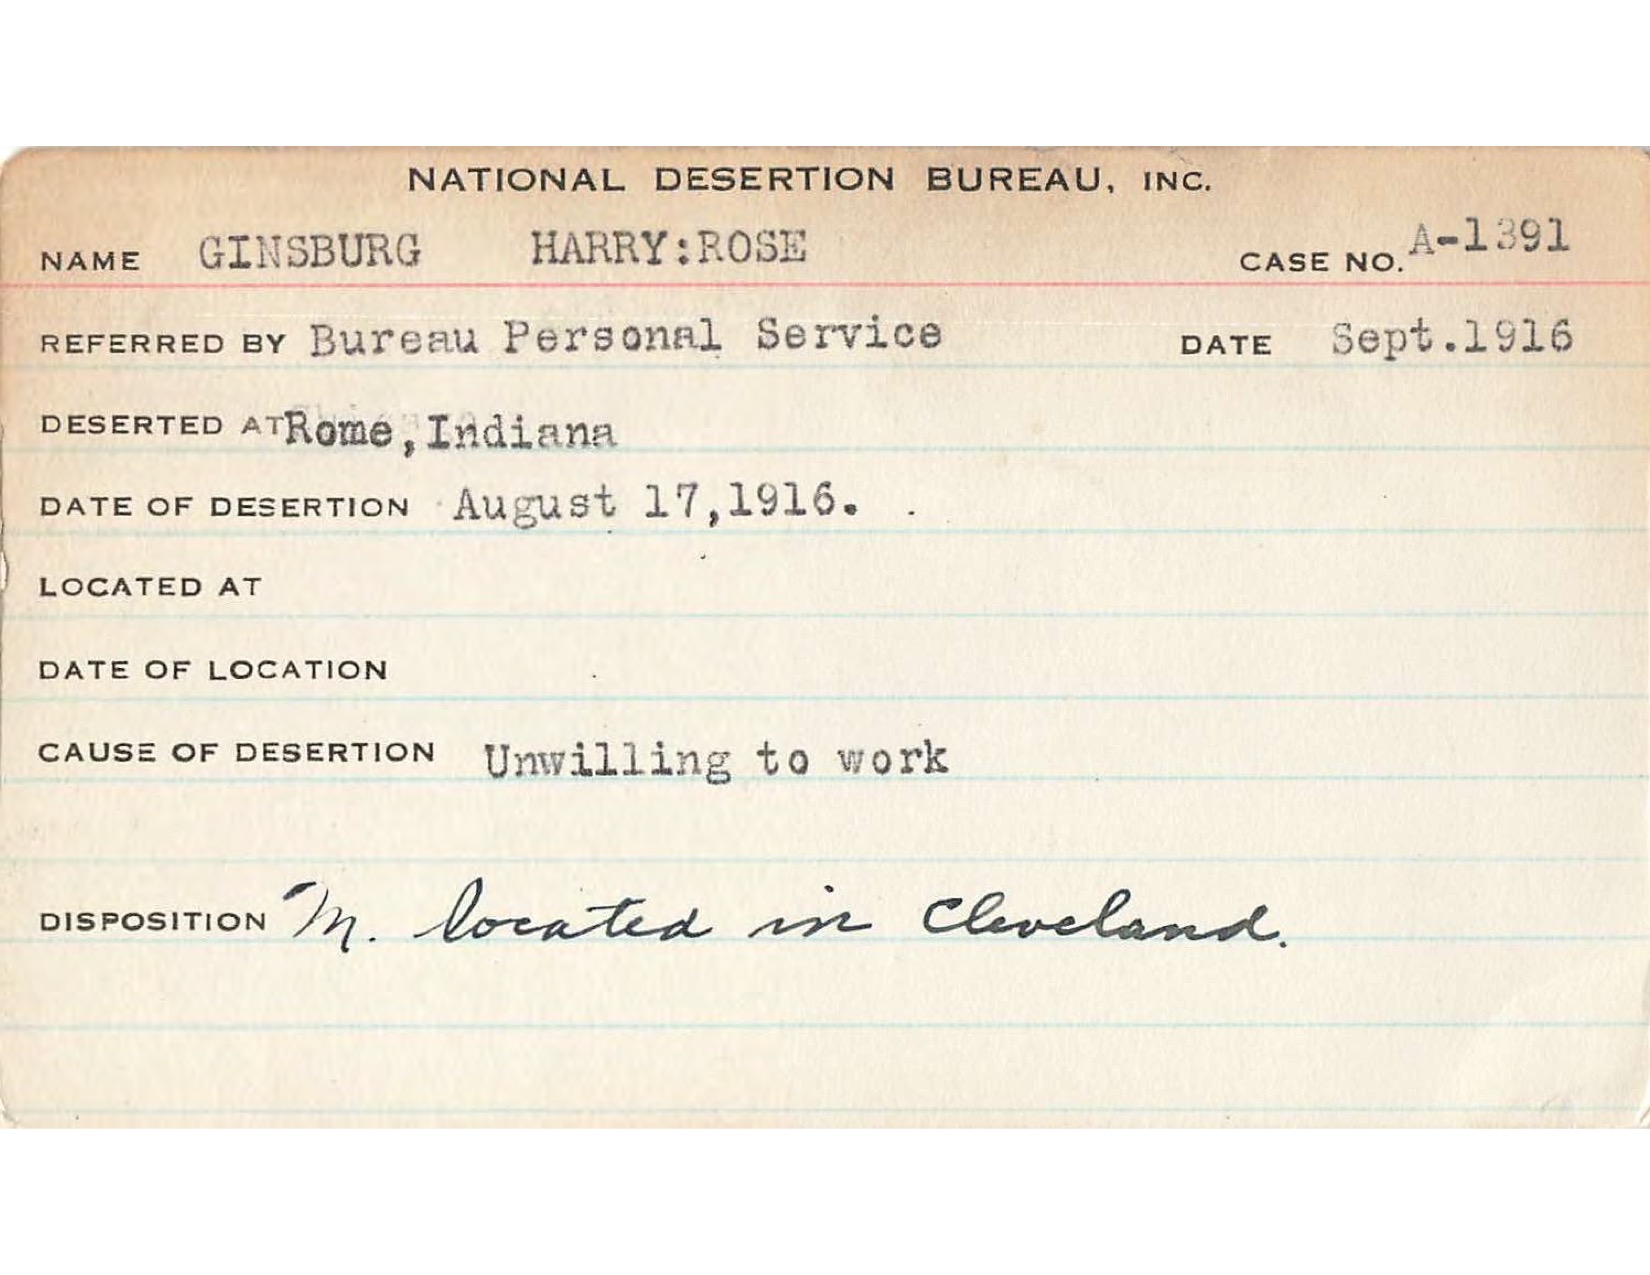 NATIONAL DESERTION BUREAU, INC.
NAME GINSBURG HARRY:ROSE CASE NO. A-1391
REFERRED BY Bureau Personal Service DATE Sept.1916
DESERTED AT Rome,Indiana
DATE OF DESERTION August 17,1916.
LOCATED AT
DATE OF LOCATION
CAUSE OF DESERTION Unwilling to work
DISPOSITION M. located in Cleveland.